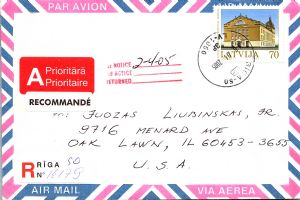 PAR AVION
LATVIJA 70
1ST NOTICE
2-4-05
2ND NOTICE
RETURNED
A Prioritārā
Prioritaire
RECOMMANDÉ
TO: JUOZAS LIUBINSKAS, JR.
9716 MENARD AVE
OAK LAWN, IL 60453-3655
U.S.A.
R RĪGA 50
N°
AIR MAIL
VIA AEREA